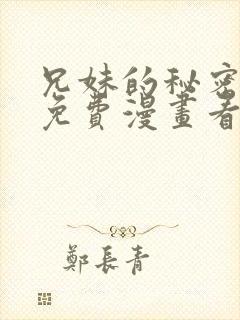 兄妹的秘密
免費漫畫看
鄭長青